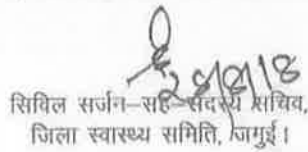 सिविल सर्जन–सह–सदस्य सचिव,
जिला स्वास्थ्य समिति, जमुई।